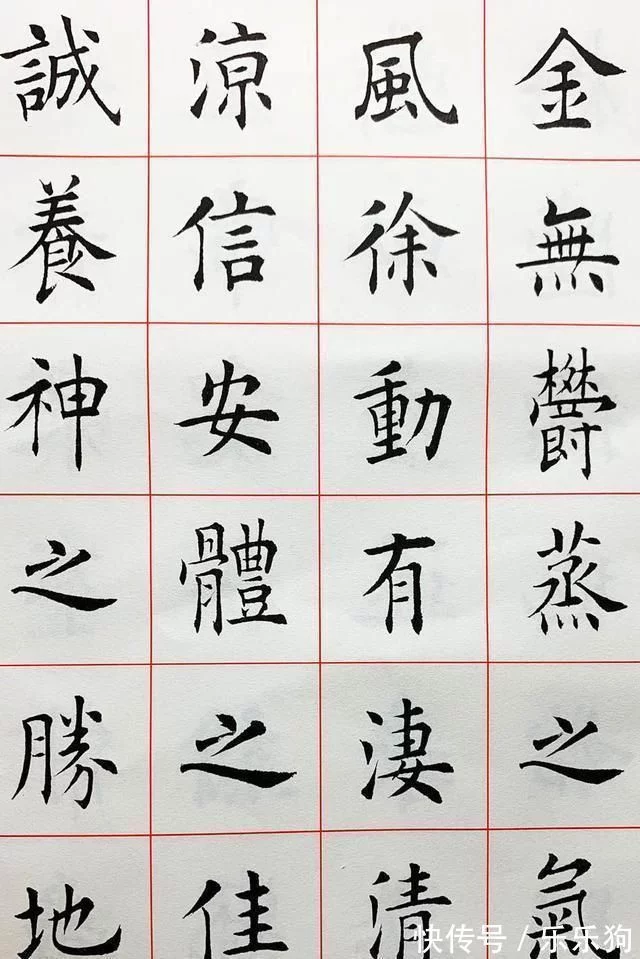 金無鬱蒸之氣
風徐動有淒清
涼信安體之佳
誠養神之勝地
快传号 / 乐乐狗